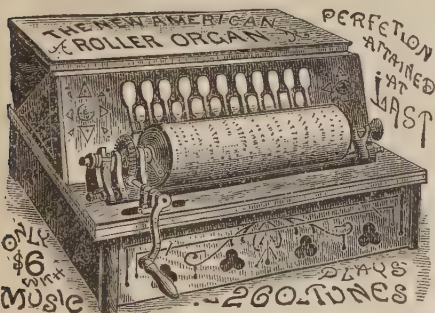 THE NEW AMERICAN
ROLLER ORGAN
PERFETION
ATTAINED
AT
LAST
ONLY
$6
WITH
MUSIC
PLAYS
260 TUNES